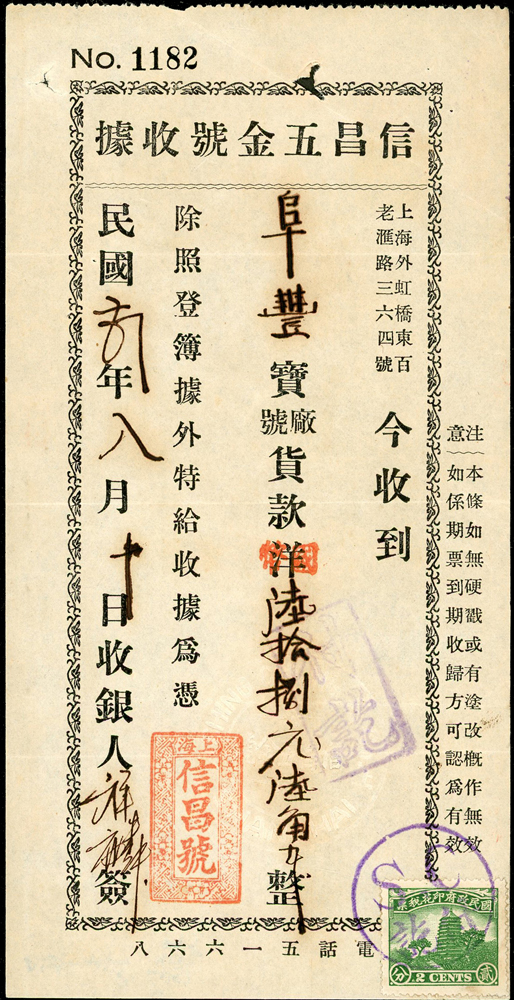 No. 1182
信昌五金號收據
注意
本條如無硬戳或有塗改概作無效
如係期票到期收歸方可認爲有效
上海外虹橋東百
老滙路三六四號
今收到
阜豐寶廠號貨款洋國幣陸拾捌元陸角整
除照登簿據外特給收據爲憑
民國年八月十日收銀人簽
上海
信昌號
電話五一六六八
國民政府印花稅票
貳分
2 CENTS